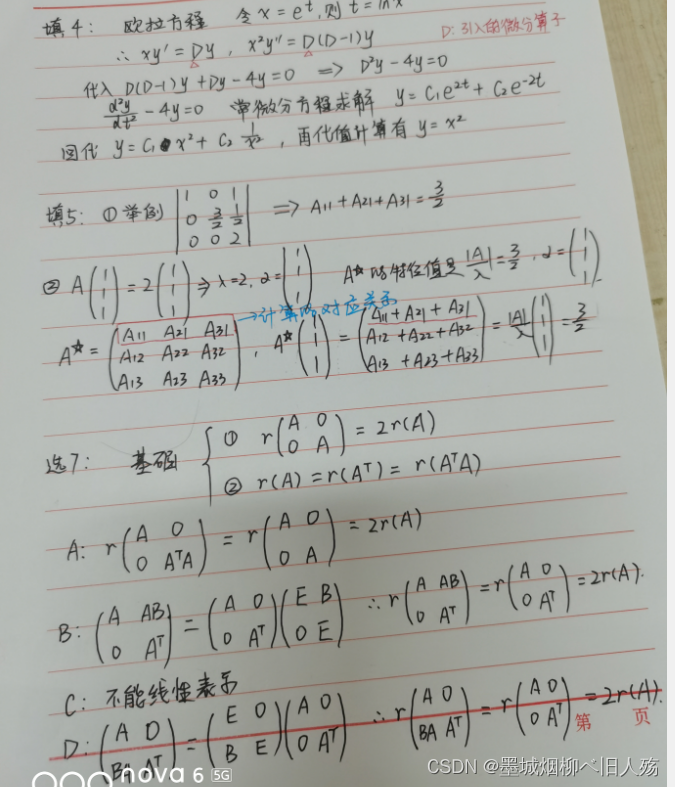 填4: 欧拉方程 令 x = e^t, 则 t = ln x
∴ xy' = Dy , x²y'' = D(D-1)y D: 引入的微分算子
代入 D(D-1)y + Dy - 4y = 0 => D²y - 4y = 0
d²y/dt² - 4y = 0 常微分方程求解 y = C₁e^2t + C₂e^-2t
回代 y = C₁ x² + C₂ 1/x² , 再代值计算有 y = x²
填5: ① 举例 | 1 0 1 | 0 3/2 1/2 | 0 0 2 | => A11 + A21 + A31 = 3/2
② A(1 1 1) = 2(1 1 1) => λ=2, α=(1 1 1) A* 的特征值是 |A|/λ = 3/2 , α = (1 1 1)
→计算的对应关系
A* = (A11 A21 A31 / A12 A22 A32 / A13 A23 A33) , A*(1 1 1) = (A11 + A21 + A31 / A12 + A22 + A32 / A13 + A23 + A33) = |A|/λ (1 1 1) = 3/2
选7: 基础 { ① r(A 0 / 0 A) = 2r(A)
② r(A) = r(Aᵀ) = r(AᵀA)
A: r(A 0 / 0 AᵀA) = r(A 0 / 0 A) = 2r(A)
B: (A AB / 0 Aᵀ) = (A 0 / 0 Aᵀ)(E B / 0 E) ∴ r(A AB / 0 Aᵀ) = r(A 0 / 0 Aᵀ) = 2r(A).
C: 不能线性表示
D: (A 0 / BA Aᵀ) = (E 0 / B E)(A 0 / 0 Aᵀ) ∴ r(A 0 / BA Aᵀ) = r(A 0 / 0 Aᵀ) = 2r(A).
第 页
nova 6 5G
CSDN @墨城烟柳ベ旧人殇